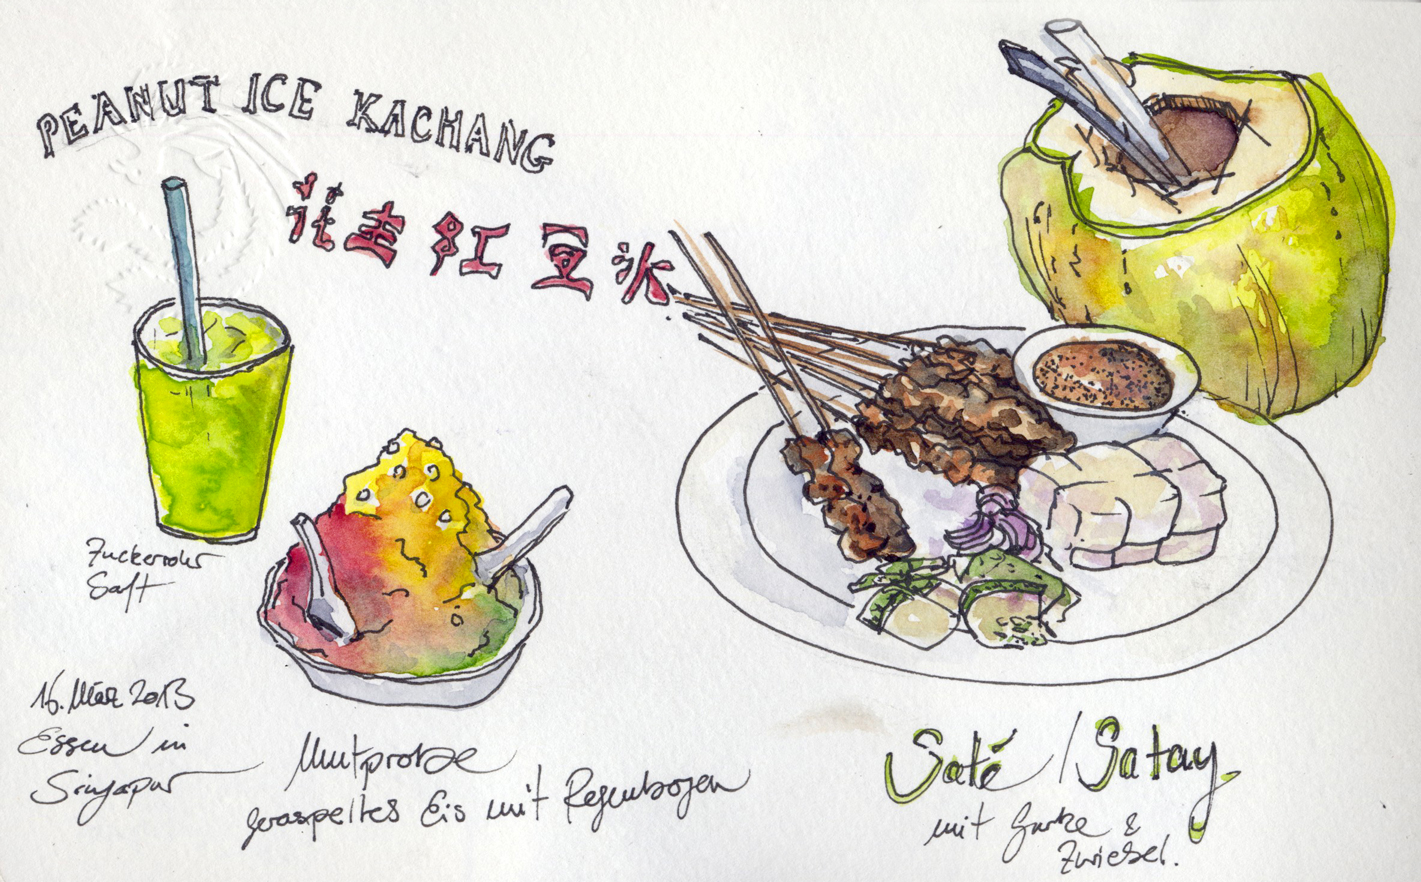 PEANUT ICE KACHANG
花生红豆冰
Zuckerrohr
Saft
16. März 2013
Essen in
Singapur
Mutprobe
geraspeltes Eis mit Regenbogen
Saté / Satay
mit Gurke &
Zwiebel.